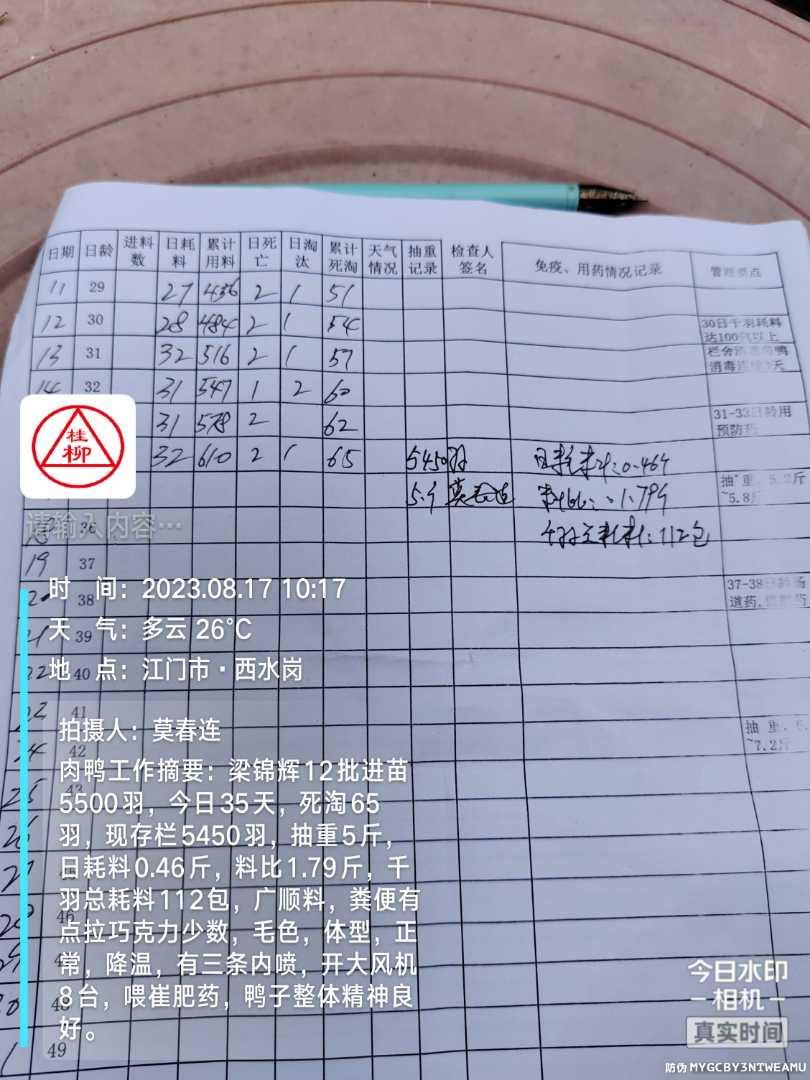 日期 日龄 进料数 日耗料 累计用料 日死亡 日淘汰 累计死淘 天气情况 抽重记录 检查人签名 免疫、用药情况记录 管理要点
11 29 27 436 2 1 51
12 30 28 484 2 1 54 30日千羽耗料
13 31 32 516 2 1 57
14 32 31 547 1 2 60
31 578 2 62 31-33日龄用
预防药
32 610 2 1 65 5450羽 日耗料:0.464
5.1 莫春连 料比:1.794
千羽总耗料:112包
抽重,5.2斤
~5.8斤
桂柳
请输入内容…
36
19 37
20 38 37-38日龄肠
道药,
21 39
22 40
23 41
24 42 抽重,6.
~7.2斤
25 43
26
27
46
48
49
时间:2023.08.17 10:17
天气:多云 26℃
地点:江门市·西水岗
拍摄人:莫春连
肉鸭工作摘要:梁锦辉12批进苗
5500羽,今日35天,死淘65
羽,现存栏5450羽,抽重5斤,
日耗料0.46斤,料比1.79斤,千
羽总耗料112包,广顺料,粪便有
点拉巧克力少数,毛色,体型,正
常,降温,有三条内喷,开大风机
8台,喂崔肥药,鸭子整体精神良
好。
今日水印
相机
真实时间
防伪 MYGCBY3NTWEAMU